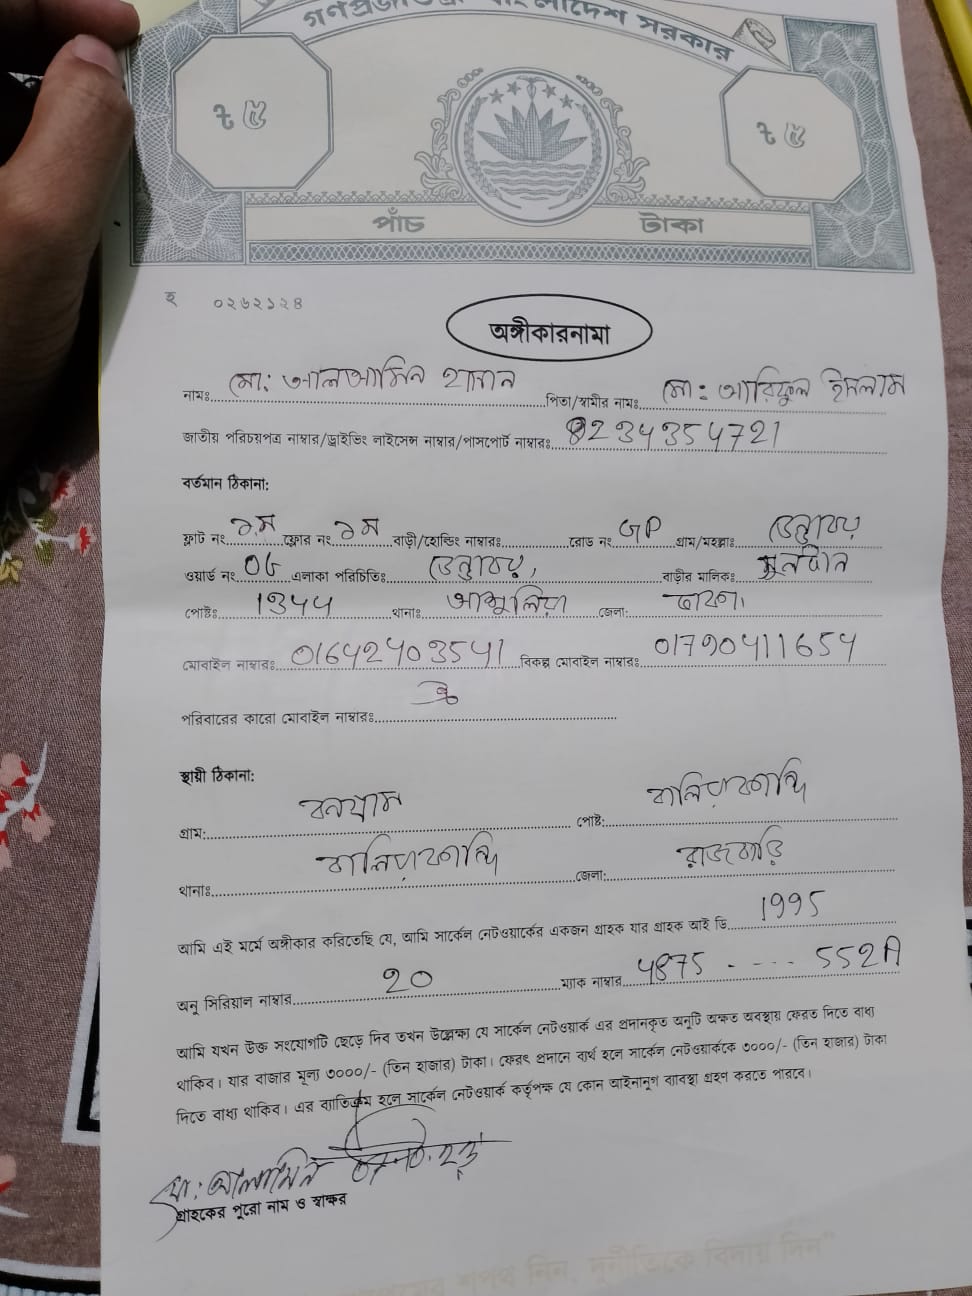 গণপ্রজাতন্ত্রী বাংলাদেশ সরকার
৳ ৫ ৳ ৫
পাঁচ টাকা
হ ০২৬২১২৪
অঙ্গীকারনামা
নামঃ মো: আলআমিন হাসান পিতা/স্বামীর নামঃ মো: আরিফুল ইসলাম
জাতীয় পরিচয়পত্র নাম্বার/ড্রাইভিং লাইসেন্স নাম্বার/পাসপোর্ট নাম্বারঃ 8234354721
বর্তমান ঠিকানা:
ফ্লাট নং ১ম ফ্লোর নং ১ম বাড়ী/হোল্ডিং নাম্বারঃ রোড নং গ্রাম/মহল্লাঃ
ওয়ার্ড নং এলাকা পরিচিতিঃ বাড়ীর মালিকঃ
পোষ্টঃ 1344 থানাঃ আশুলিয়া জেলা: ঢাকা
মোবাইল নাম্বারঃ 01642403541 বিকল্প মোবাইল নাম্বারঃ 01790411654
পরিবারের কারো মোবাইল নাম্বারঃ
স্থায়ী ঠিকানা:
গ্রাম: বনগ্রাম পোষ্ট: বালিয়াকান্দি
থানাঃ বালিয়াকান্দি জেলা: রাজবাড়ি
আমি এই মর্মে অঙ্গীকার করিতেছি যে, আমি সার্কেল নেটওয়ার্কের একজন গ্রাহক যার গ্রাহক আই ডি 1995
অনু সিরিয়াল নাম্বার 20 ম্যাক নাম্বার 4875 - --- 552A
আমি যখন উক্ত সংযোগটি ছেড়ে দিব তখন উল্লেক্ষ্য যে সার্কেল নেটওয়ার্ক এর প্রদানকৃত অনুটি অক্ষত অবস্থায় ফেরত দিতে বাধ্য
থাকিব। যার বাজার মূল্য ৩০০০/- (তিন হাজার) টাকা। ফেরৎ প্রদানে ব্যর্থ হলে সার্কেল নেটওয়ার্ককে ৩০০০/- (তিন হাজার) টাকা
দিতে বাধ্য থাকিব। এর ব্যতিক্রম হলে সার্কেল নেটওয়ার্ক কর্তৃপক্ষ যে কোন আইনানুগ ব্যাবস্থা গ্রহণ করতে পারবে।
মো: আলআমিন
গ্রাহকের পুরো নাম ও স্বাক্ষর
শপথ নিন, দুর্নীতিকে বিদায় দিন"